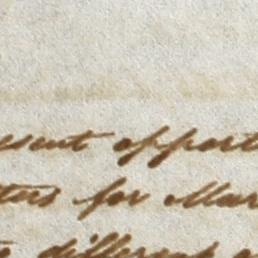 esent opport
tters for Mar
different